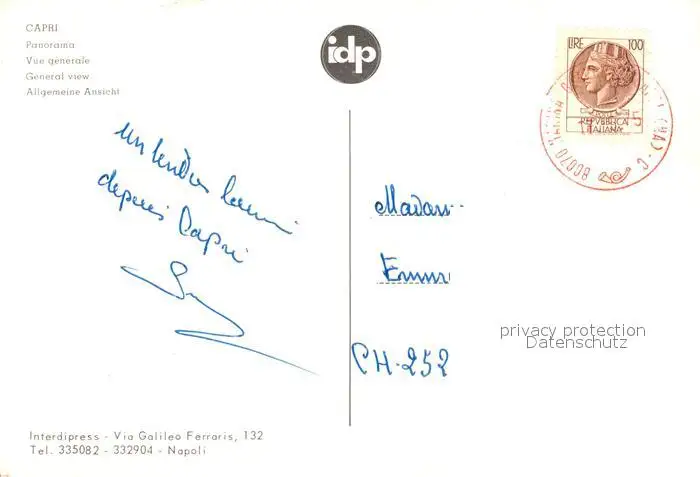 CAPRI
Panorama
Vue generale
General view
Allgemeine Ansicht
idp
LIRE 100
REPVBBLICA
ITALIANA
80070
un tendre
depuis Capri
Madam
Emm
CH-252
privacy protection
Datenschutz
Interdipress - Via Galileo Ferraris, 132
Tel. 335082 - 332904 - Napoli